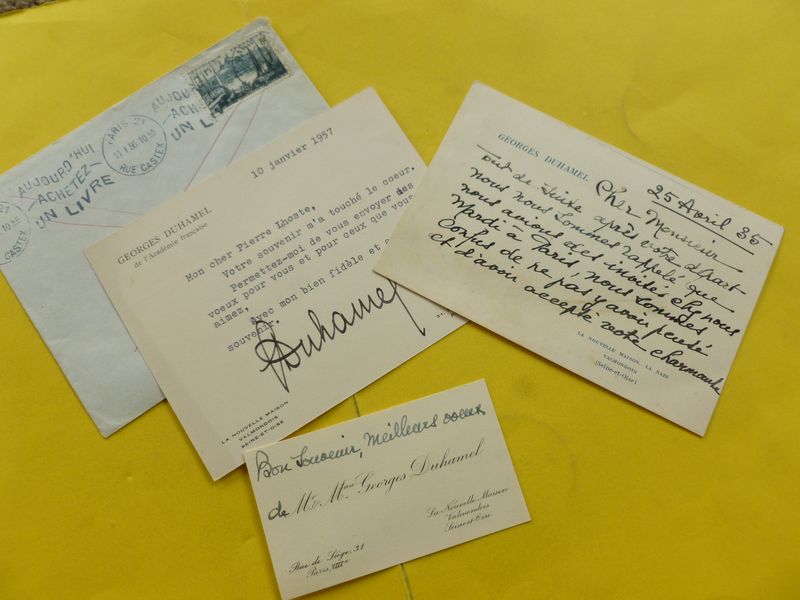 AUJOURD'HUI
ACHETEZ
UN LIVRE
PARIS 27
11 1 56 10 35
RUE CASTEX
AUJOURD
ACHE
UN LIV
27
10 35
CASTEX
GEORGES DUHAMEL
de l'Académie française
10 janvier 1957
Mon cher Pierre Lhoste,
Votre souvenir m'a touché le coeur.
Permettez-moi de vous envoyer des
voeux pour vous et pour ceux que vous
aimez,
avec mon bien fidèle et
souvenir.
Duhamel
LA NOUVELLE MAISON
VALMONDOIS
SEINE-ET-OISE
GEORGES DUHAMEL
25 Avril 35
Cher Monsieur
tout de suite après votre départ
nous nous sommes rappelé que
nous avions des invités chez nous
Mardi à Paris, nous sommes
confus de ne pas y avoir pensé
et d'avoir accepté votre charmante
LA NOUVELLE MAISON, LA NAZE
VALMONDOIS
(Seine-et-Oise)
Bon souvenir, meilleurs voeux
de Mr & Mme Georges Duhamel
La Nouvelle Maison
Valmondois
Seine-et-Oise
Rue de Liège, 31
Paris, VIIIe